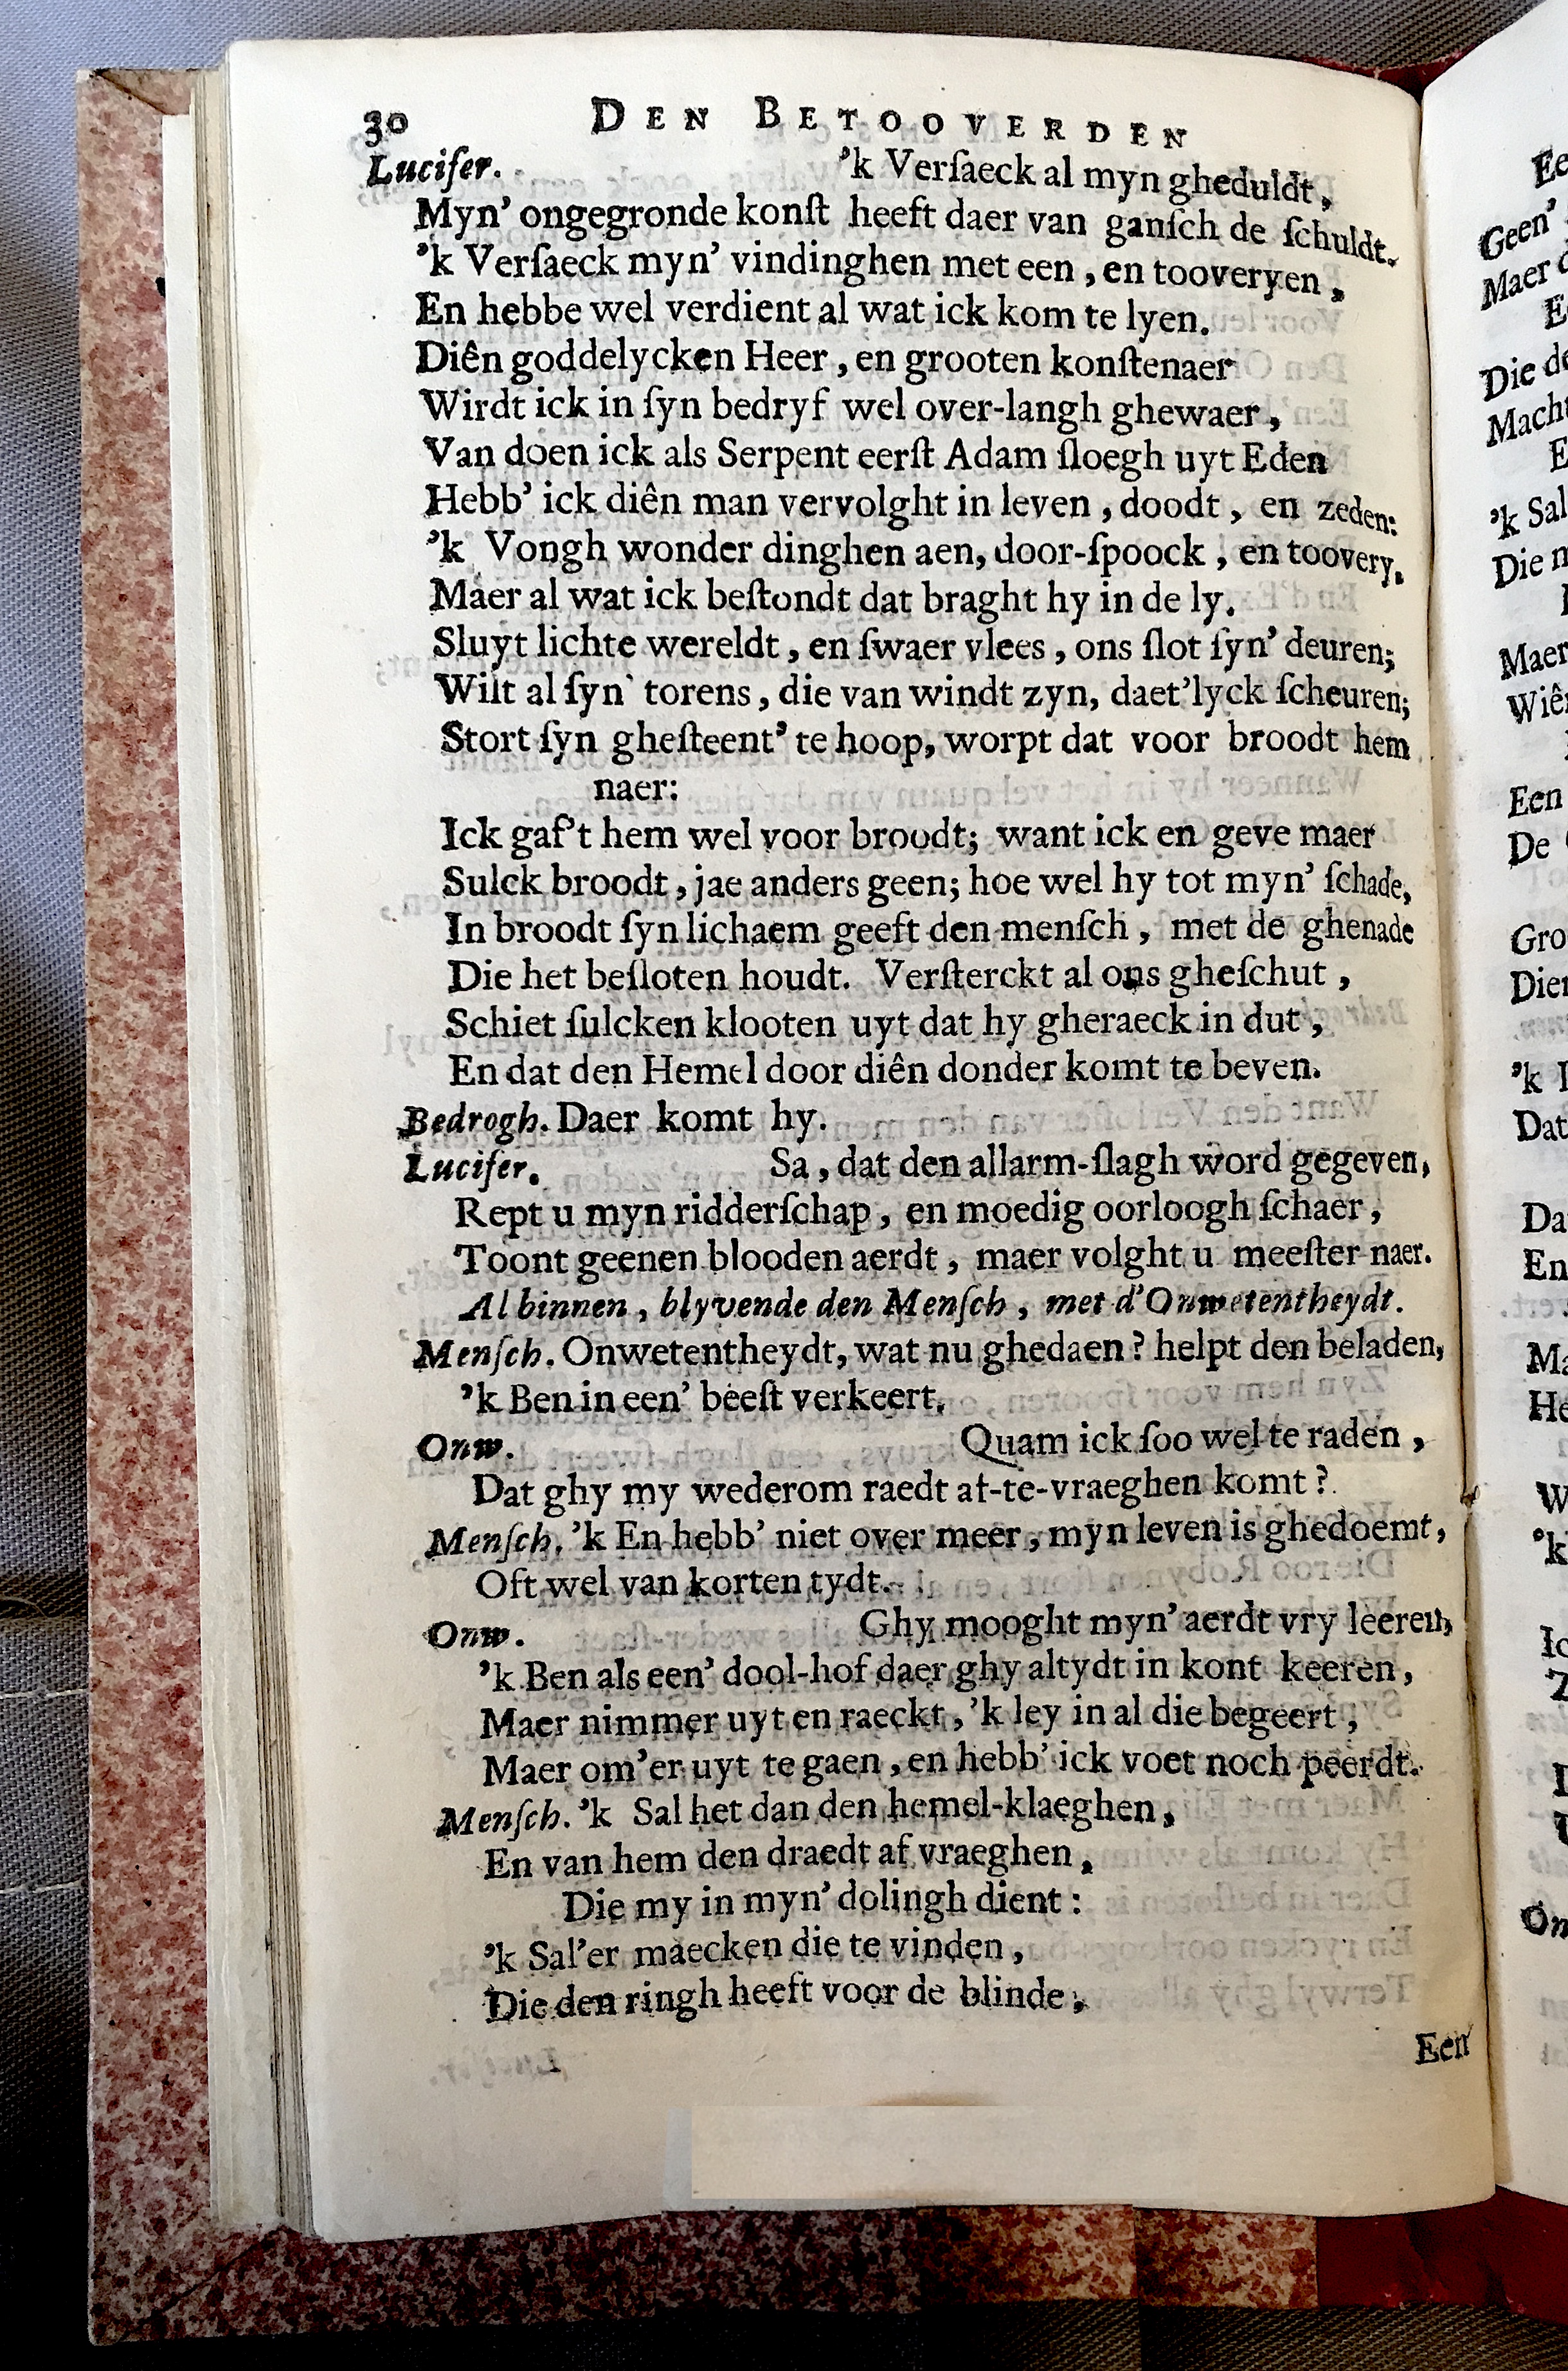 30 DEN BETOOVERDEN
Lucifer. 'k Verſaeck al myn gheduldt,
Myn' ongegronde konſt heeft daer van ganſch de ſchuldt.
'k Verſaeck myn' vindinghen met een, en tooveryen,
En hebbe wel verdient al wat ick kom te lyen.
Diên goddelycken Heer, en grooten konſtenaer
Wirdt ick in ſyn bedryf wel over-langh ghewaer,
Van doen ick als Serpent eerſt Adam ſloegh uyt Eden
Hebb' ick diên man vervolght in leven, doodt, en zeden:
'k Vongh wonder dinghen aen, door-ſpoock, en toovery,
Maer al wat ick beſtondt dat braght hy in de ly.
Sluyt lichte wereldt, en ſwaer vlees, ons ſlot ſyn' deuren;
Wilt al ſyn' torens, die van windt zyn, daet'lyck ſcheuren;
Stort ſyn gheſteent' te hoop, worpt dat voor broodt hem
naer:
Ick gaf't hem wel voor broodt; want ick en geve maer
Sulck broodt, jae anders geen; hoe wel hy tot myn' ſchade,
In broodt ſyn lichaem geeft den menſch, met de ghenade
Die het beſloten houdt. Verſterckt al ons gheſchut,
Schiet ſulcken klooten uyt dat hy gheraeck in dut,
En dat den Hemel door diên donder komt te beven.
Bedrogh. Daer komt hy.
Lucifer. Sa, dat den allarm-ſlagh word gegeven,
Rept u myn ridderſchap, en moedig oorloogh ſchaer,
Toont geenen blooden aerdt, maer volght u meeſter naer.
Al binnen, blyvende den Menſch, met d'Onwetentheydt.
Menſch. Onwetentheydt, wat nu ghedaen? helpt den beladen,
'k Ben in een' beeſt verkeert.
Onw. Quam ick ſoo wel te raden,
Dat ghy my wederom raedt af-te-vraeghen komt?
Menſch. 'k En hebb' niet over meer, myn leven is ghedoemt,
Oft wel van korten tydt.
Onw. Ghy mooght myn' aerdt vry leeren,
'k Ben als een' dool-hof daer ghy altydt in kont keeren,
Maer nimmer uyt en raeckt, 'k ley in al die begeert,
Maer om'er uyt te gaen, en hebb' ick voet noch peerdt.
Menſch. 'k Sal het dan den hemel-klaeghen,
En van hem den draedt af vraeghen,
Die my in myn' dolingh dient:
'k Sal'er maecken die te vinden,
Die den ringh heeft voor de blinde,
Een